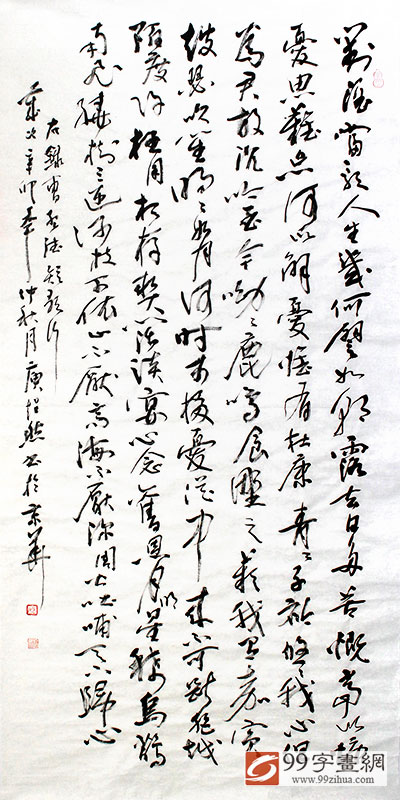 對酒當歌人生幾何譬如朝露去日多苦慨當以慷
憂思難忘何以解憂惟有杜康青々子衿悠々我心但
為君故沉吟至今呦々鹿鳴食野之蘋我有嘉賓
鼓瑟吹笙明々如月何時可掇憂從中來不可斷絕越
陌度阡枉用相存契闊談宴心念舊恩月明星稀烏鵲
南飛繞樹三匝何枝可依山不厭高海不厭深周公吐哺天下歸心
右錄曹孟德短歌行
歲次辛卯年仲秋月書於京華
99字畫網
www.99zihua.com